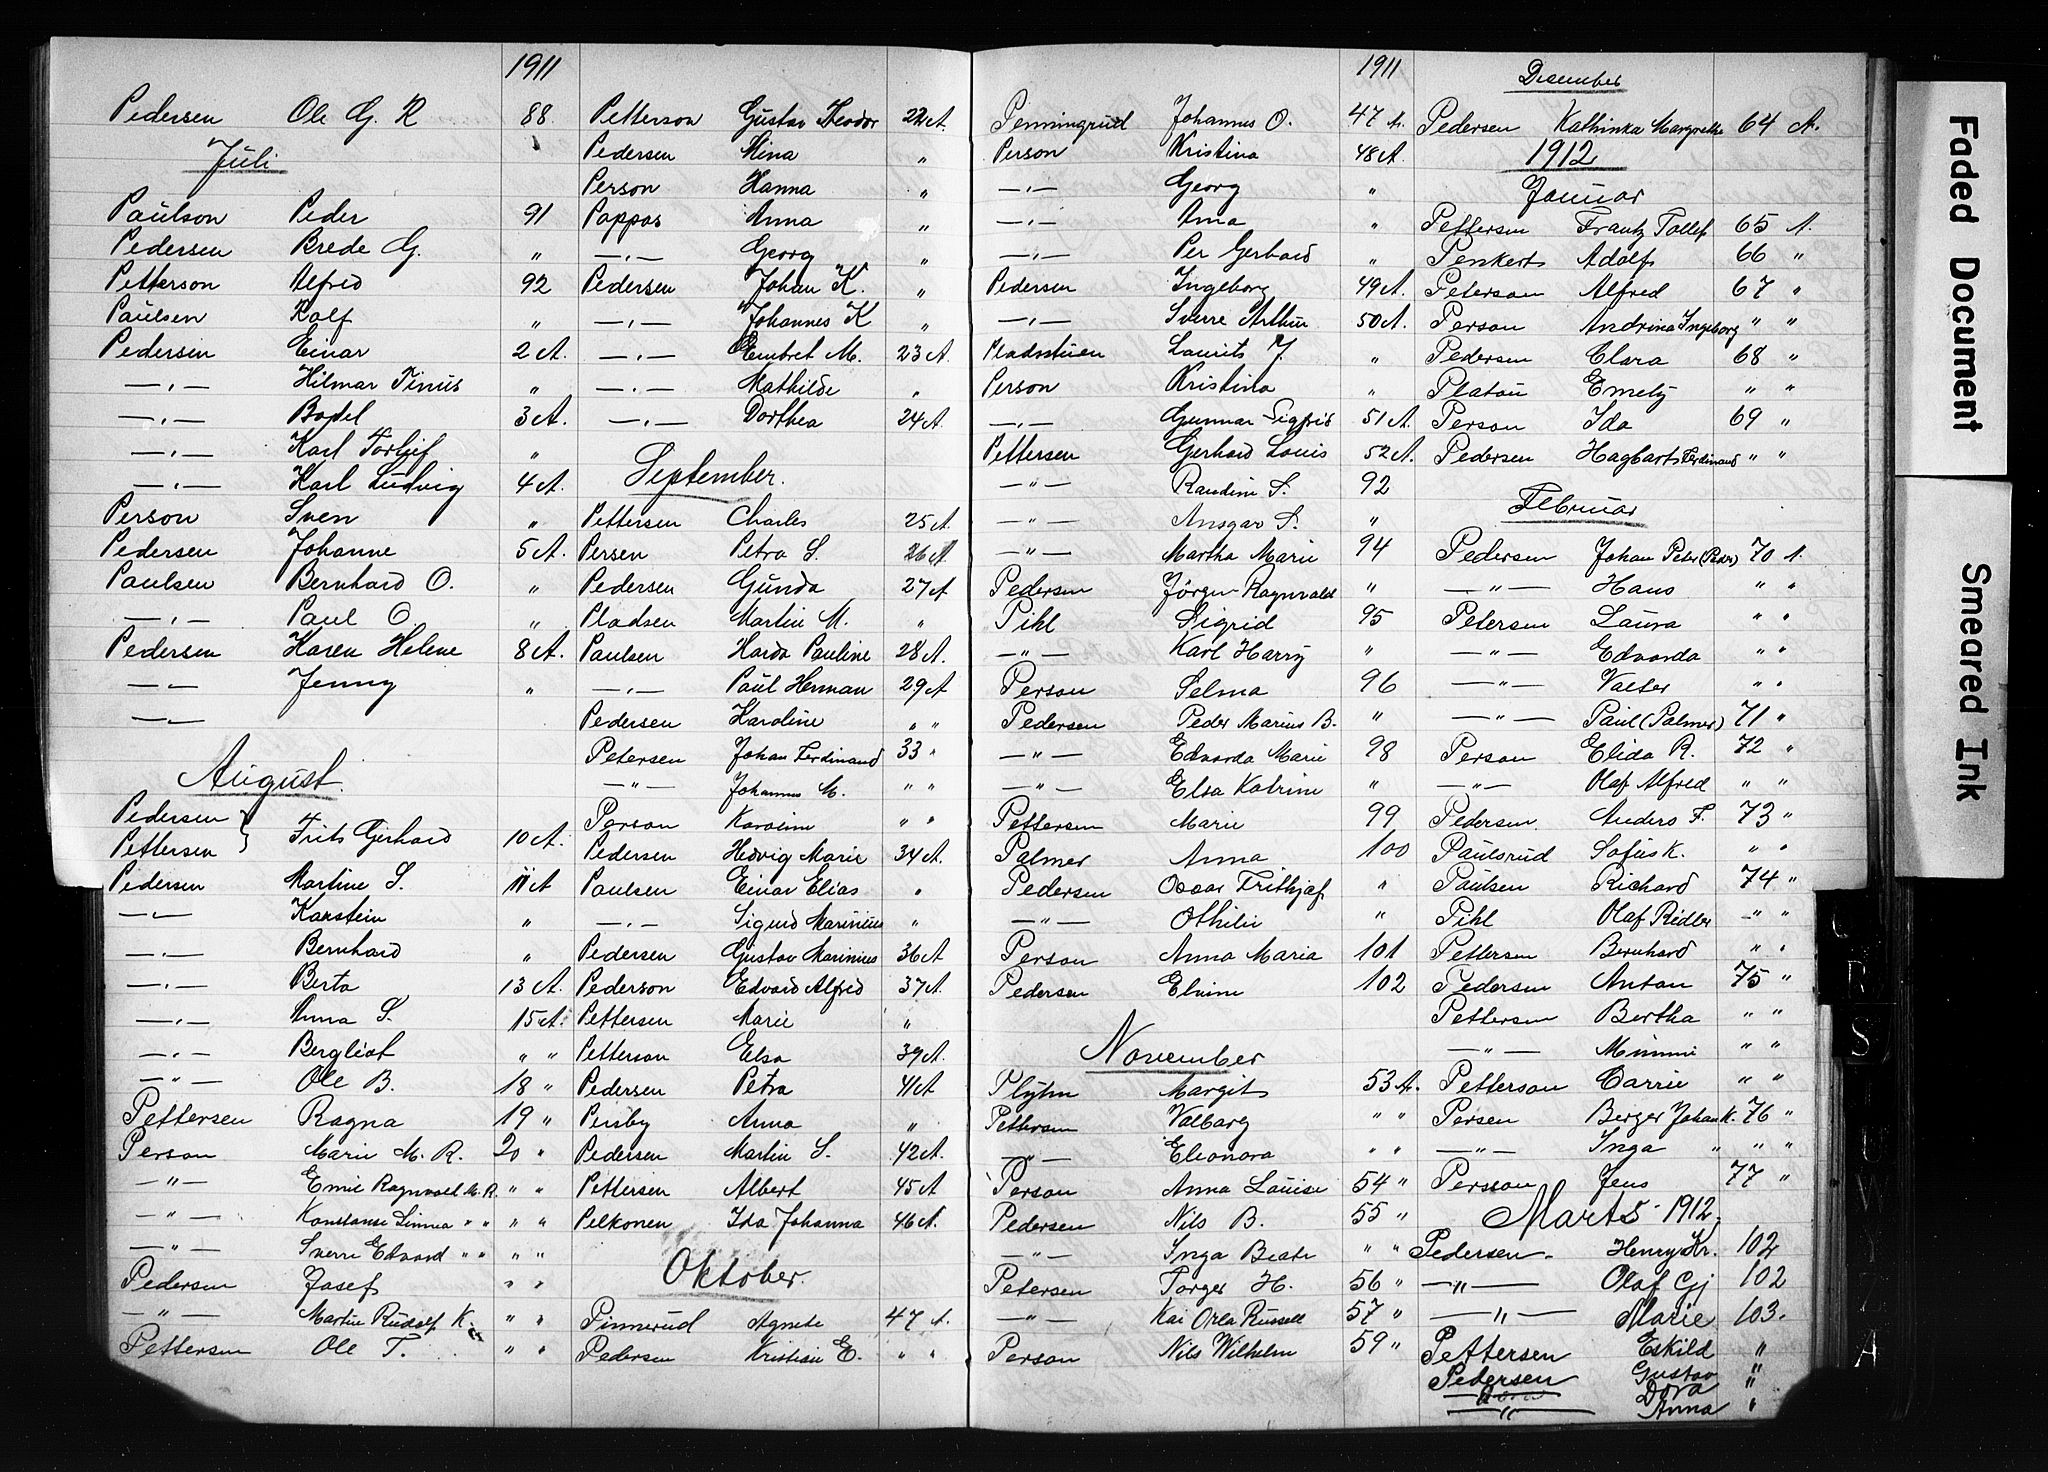 1911
Pedersen Ole G. R 88
Juli
Paulson Peder 91
Pedersen Brede G. "
Petterson Alfred 92
Paulsen Rolf "
Pedersen Einar 2 A.
—"— Hilmar Tinius "
—"— Bodel 3 A.
—"— Karl Torleif "
—"— Karl Ludvig 4 A.
Person Sven "
Pedersen Johanne 5 A.
Paulsen Bernhard O. "
—"— Paul O. "
Pedersen Karen Helene 8 A.
—"— Jenny "
—"—
August.
Pedersen }
Pettersen } Frits Gerhard 10 A.
Pedersen Martine S. 11 A
—"— Karstein "
—"— Bernhard "
—"— Berta 13 A.
—"— Anna S. 15 A.
—"— Bergliot " "
—"— Ole B. 18 "
Pettersen Ragna 19 "
Person Marie M. R. 20 "
—"— Emil Ragnvald M. R. " "
—"— Konstanse Linnea " " " "
—"— Sverre Edvard " " " "
Pedersen Josef " "
—"— Martin Rudolf K. " "
Pettersen Ole T. " "
Petterson Gustav Theodor 22 A.
Pedersen Mina "
Person Hanna "
Pappas Anna "
—"— Georg "
Pedersen Johan K. "
—"— Johannes K "
—"— Embret M. 23 A.
—"— Mathilde "
—"— Dorthea 24 A.
September.
Pettersen Charles 25 A.
Persen Petra S. 26 A.
Pedersen Gunda 27 A
Pladsen Martin M. "
Paulsen Harda Pauline 28 A.
—"— Paul Herman 29 A
Pedersen Karoline " "
Petersen Johan Ferdinand 33 "
—"— Johannes M. " "
Person Karoline " "
Pedersen Hedvig Marie 34 A.
Paulsen Einar Elias "
—"— Sigurd Marinius "
Pedersen Gustav Marinius 36 A
Pederson Edvard Alfred 37 A.
Pettersen Marie "
Petterson Elsa 39 A.
Pedersen Petra 41 A
Persby Anna "
Pedersen Martin S. 42 A.
Pettersen Albert 45 A
Pelkonen Ida Johanna 46 A.
Oktober.
Pinnerud Agnete 47 A.
Pedersen Kristian E. " "
1911
Penningrud Johannes O. 47 A.
Person Kristina 48 A.
—"— Georg "
—"— Ama "
—"— Per Gerhard "
Pedersen Ingeborg 49 A.
—"— Sverre Arthur 50 A.
Pladsstuen Laurits J "
Person Kristina "
—"— Gunnar Sigfrid 51 A.
Pettersen Gerhard Louis 52 A.
—"— Randine S. 92
—"— Ansgar S. "
—"— Martha Marie 94
Pedersen Jørgen Ragnvald "
Pihl Sigrid 95
—"— Karl Harry "
Person Selma 96
Pedersen Peder Marius B. "
—"— Edvarda Marie 98
—"— Elsa Katrine "
Pettersen Marie 99
Palmer Anna 100
Pedersen Oscar Frithjof "
—"— Othilie "
Person Anna Maria 101
Pedersen Elvine 102
November
Plym Margit 53 A.
Pettersen Valborg " "
—"— Eleonora " "
Person Anna Louise 54 "
Pedersen Nils B. 55 "
—"— Inga Beate " "
Petersen Torger H. 56 "
—"— Kai Orla Russell 57 "
Person Nils Wilhelm 59 "
Desember
Pedersen Kathinka Margrethe 64 A.
1912
Januar
Pettersen Frantz Tollef 65 A.
Penkert Adolf 66 "
Peterson Alfred 67 "
Person Andrina Ingeborg " "
Pedersen Clara 68 "
Platou Emely " "
Person Ida 69 "
Pedersen Hagbart Ferdinand " "
Februar
Pedersen Johan Peter (Peder) 70 A.
—"— Hans " "
Petersen Laura " "
—"— Edvarda " "
—"— Valter " "
—"— Paul (Palmer) 71 "
Person Elida R. 72 "
—"— Olaf Alfred " "
Pedersen Anders F. 73 "
Paulsrud Sofus K. " "
Paulsen Richard 74 "
Pihl Olaf Ridler " "
Pettersen Bernhard " "
Pedersen Anton 75 "
Pettersen Bertha " "
—"— Mimmi " "
Petterson Carrie " "
Persen Berger Johan K. 76 "
—"— Inga " " "
Persson Jens 77 "
Marts 1912.
Pedersen Henry Kr. 102
—"— Olaf Gj 102
—"— Marie 103.
Pettersen Eskild "
Pedersen Gustav "
—"— Dora "
—"— Anna "
Faded Document
Smeared Ink